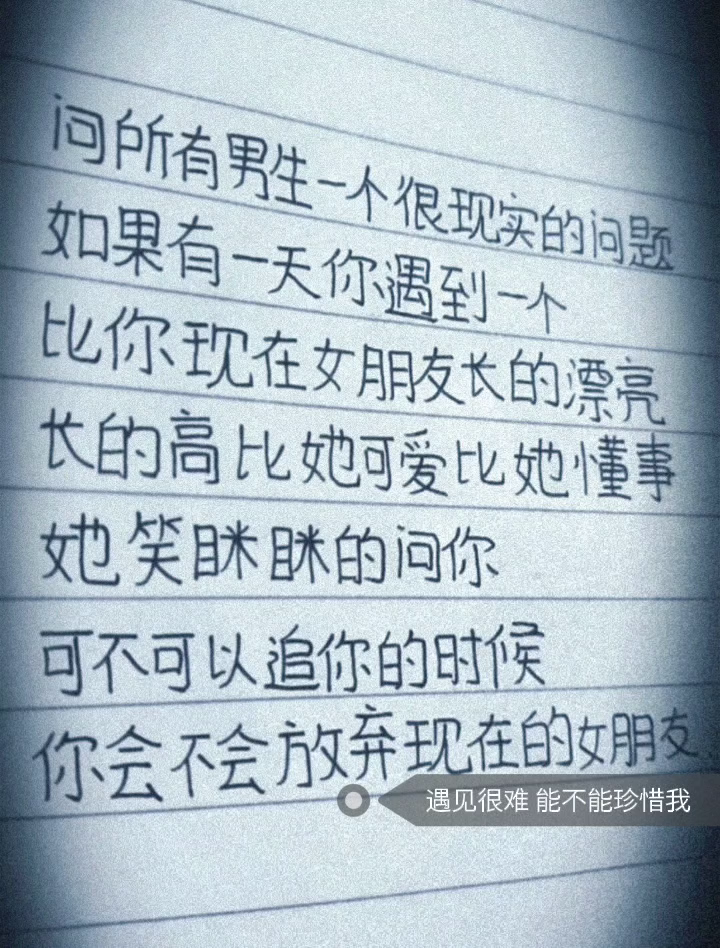 问所有男生一个很现实的问题
如果有一天你遇到一个
比你现在女朋友长的漂亮
长的高比她可爱比她懂事
她笑眯眯的问你
可不可以追你的时候
你会不会放弃现在的女朋友
遇见很难 能不能珍惜我